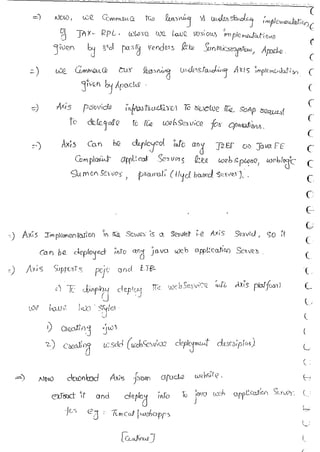 =) Now, we Commence the learning & understanding implementation
of JAX-RPC. where we have various implementations
given by 3rd party vendors like Sunmicrosystem, Apache.
=) we Commence our learning understanding AXIS implementation
given by Apache.
=) Axis provide infrastructures to receive the SOAP request
to delegate to the webservice for operations.
=) Axis can be deployed into any J2EE or Java EE
Complaint applicat Servers like websphere, weblogic
Sumon Server, pramati (Hyd based server).
=) Axis Implementation in the Server is a Servlet i.e Axis Servlet, so it
can be deployed into any java web application Server
=) Axis Supports pojo and EJB
=) To deploy the webservice into Axis platform
we have two styles
1) creating .jws
2) creating wsdd (webservice deployment descriptor)
=) Now download Axis from apache website.
extract it and deploy into to java web application Server.
for eg: Tomcat/webapps
[continue]